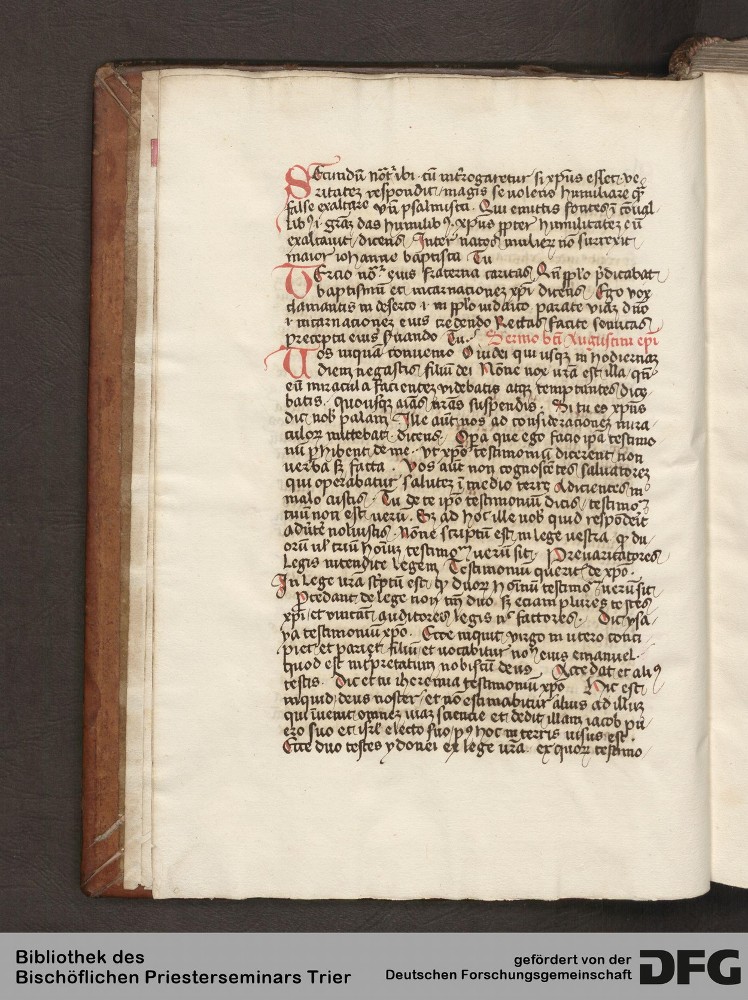 Secundū notr̄ ibi · cū int̄rogaretur si xp̄us esset · ve
ritatez respondit / magis se volens humiliare q̄
false exaltare vn̄ psalmista · Qui emittis fontes ī cōual
libꝰ · i · grāz das humilibꝰ · xp̄us ꝓpter humilitatez eū
exaltauit / dicens / Inter natos mulierꝝ nō surrexit
maior iohanne baptista Tu
Tercio no · eius fraterna caritas / Qn̄ pplo p̄dicabat
baptismū et incarnationez xp̄i dicens / Ego vox
clamantis in deserto · i · in pplo iudaico parate viaz dn̄o
· i · incarnationez eius credendo Rectas facite semitas
precepta eius seruando Tu · Sermo bt̄i Augustini ep̄i
Uos inquā conuenio O iudei qui usqꝫ in hodiernaz
diem negastis filiū dei Nōne vox vr̄a est illa / qn̄
eū miracula facientez videbatis atqꝫ temptantes dice
batis · quousqꝫ aīas nr̄as suspendis · Si tu es xp̄us
dic nob̄ palam / Ille aūt uos ad considerationez mira
culoꝝ mittebat dicens · Opera que ego facio ip̄a testimo
niū ꝑhibent de me · vt xp̄o testimoniū dicerent non
verba sꝫ facta · Vos aūt non cognoscētes saluatorez
qui operabatur salutez ī medio terre Adicientes in
malo aistis · Tu de te ip̄o testimoniū dicis / testimoꝫ
tuū non est verū · Eꝫ ad hoc ille uob̄ quid respōdeīt
aduēte noluistis · Nōne scriptū est in lege vestra qꝫ du
orū vl̄ triū hoīuꝫ testimoꝫ verū sit · Preuaricatores
Legis intendite legem Testimoniū querit de xp̄o ·
In lege vr̄a sc̄ptū est qꝫ duoꝝ hoīnū testimoꝫ verū sit
Procedant de lege non tm̄ duo sꝫ eciam plures testes
xp̄i / et vincāt auditores legis nꝫ factores · Dic ysa
ya testimoniū xp̄o · Ecce inquit virgo in utero conci
piet et pariet filiū et vocabitur noꝫ eius emanuel ·
quod est int̄pretatum nobiscū deus Accedat et aliꝰ
testis · Dic et tu iheremia testimoniū xp̄o Hic est
inquid deus noster / et nō estimabitur alius ad illuꝫ
qui īuenit omnez viaz sciencie et dedit illam iacob pu
ero suo et isrl̄ electo suo / pꝰ hoc in terris uisus est ·
Ecce duo testes ydonei ex lege vr̄a · ex quoꝝ testimo
Bibliothek des
Bischöflichen Priesterseminars Trier
gefördert von der
Deutschen Forschungsgemeinschaft
DFG